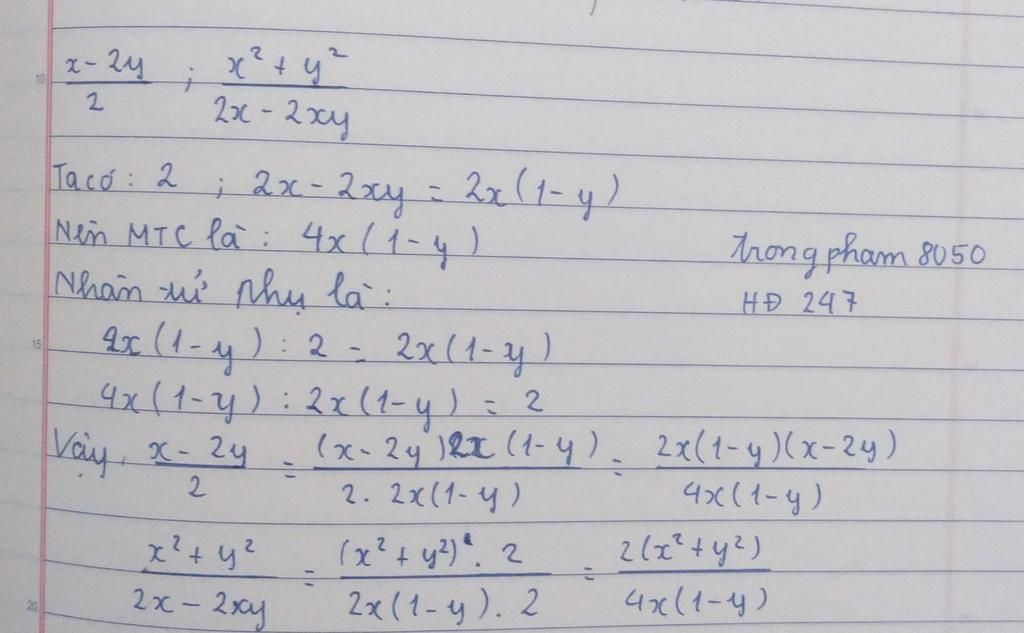 x - 2y / 2 ; x² + y² / 2x - 2xy
Ta có: 2 ; 2x - 2xy = 2x(1 - y)
Nên MTC là: 4x(1 - y)
trongpham 8050
Nhân tử phụ là:
HĐ 247
4x(1 - y) : 2 = 2x(1 - y)
4x(1 - y) : 2x(1 - y) = 2
Vậy, x - 2y / 2 = (x - 2y)2x(1 - y) / 2. 2x(1 - y) = 2x(1 - y)(x - 2y) / 4x(1 - y)
x² + y² / 2x - 2xy = (x² + y²) . 2 / 2x(1 - y). 2 = 2(x² + y²) / 4x(1 - y)